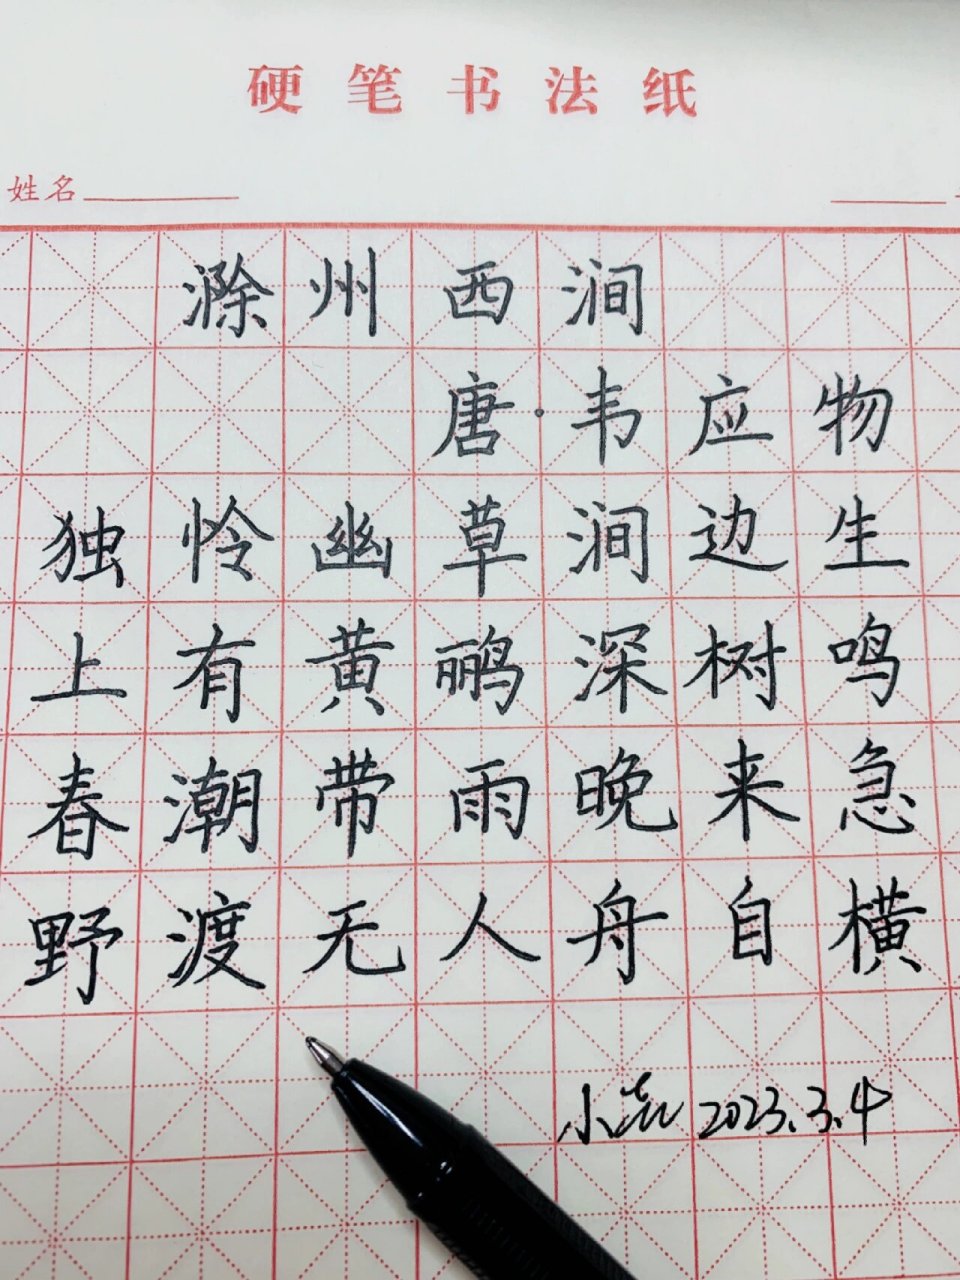 硬笔书法纸
姓名
滁州西涧
唐·韦应物
独怜幽草涧边生
上有黄鹂深树鸣
春潮带雨晚来急
野渡无人舟自横
小 2023.3.4